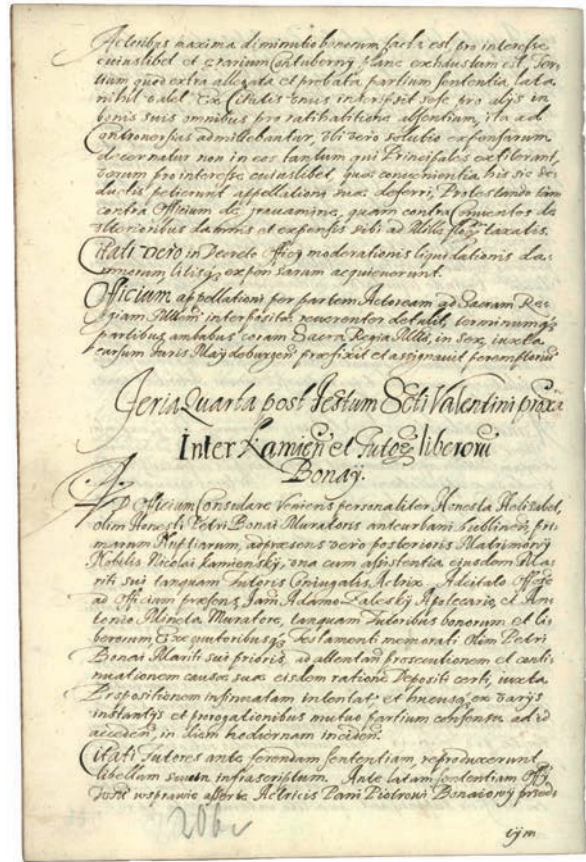 Actoribus maxima diminutio bonorum facta est, pro interesse
cuiuslibet et erarium Contubernij plane exhaustum est, Ter-
tium quod extra allegata et probata partium sententia lata
nihil valet. Ex Citatis unus interfuit sese pro alijs in
bonis suis omnibus pro ratihabitione absentium, ita ad
Controversias admittebantur, ubi vero solutio expensarum
decernatur non in eos tantum qui Principales extiterant,
verum pro interesse cuiuslibet, quae convenientia, his sic de
ductis petierunt appellationi suae deferri, Protestando tam
contra Officium de gravamine, quam contra Conventos de
ulterioribus damnis et expensis sibi ad Mille taxatis.
Citati vero in Decreto Officij moderationis liquidationis da-
mnorum litisque expensarum acquieverunt.
Officium appellationi per partem Actoream ad Sacram Re-
giam interpositae reverenter detulit, terminumque
partibus ambabus coram Sacra Regia in sex, iuxta
cursum Iuris Maydeburgen praefixit et assignavit peremptorium
Feria Quarta post Festum Scti Valentini proxa
Inter Kamien et Tutores liberorum
Bonaÿ.
AD Officium Consulare Veniens personaliter Honesta Helizabet,
olim Honesti Petri Bonai Muratoris anteurbani Lublinen, pri-
marum Nuptiarum, ad praesens vero posterioris Matrimonij
Nobilis Nicolai Kamiensky, una cum assistentia eiusdem Ma-
riti sui tanquam Tutoris Coniugalis Actrix. Adcitato
ad Officium praesens Adamo Zalesky Apotecario, et An-
tonio Mureta Muratore, tanquam Tutoribus bonorum et li-
berorum Exequutoribusque Testamenti memorati olim Petri
Bonai Mariti sui prioris, ad attentan prosecutionem et conti-
nuationem causae suae eisdem ratione Depositi certi, iuxta
Propositionem insinuatam intentat, et hucusque ex varijs
instantijs et prorogationibus mutuo partium consensu ad id
acceden, in diem hodiernam inciden.
Citati Tutores ante ferendam sententiam, reproduxerunt
libellum suum infrascriptum. Ante latam sententiam Offij
w sprawie Actricis Pani Piotrowi Bonaiowij przeds
206v
ijm